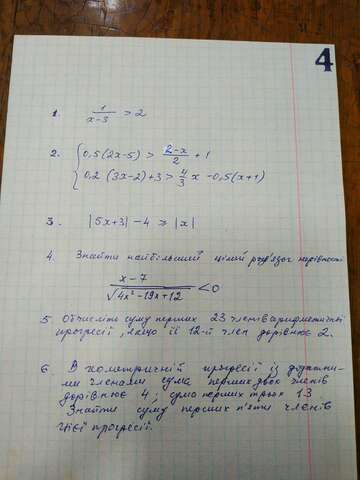 4
1. 1/(x-3) > 2
2. { 0,5(2x-5) > (2-x)/2 + 1
0,2 (3x-2)+3 > 4/3 x - 0,5(x+1)
3. |5x+3| - 4 ≥ |x|
4. Знайти найбільший цілий розв'язок нерівності
(x-7)/√(4x²-19x+12) < 0
5. Обчисліть суму перших 23 членів арифметичної
прогресії, якщо її 12-й член дорівнює 2.
6. В геометричній прогресії із додатни-
ми членами сума перших двох членів
дорівнює 4; сума перших трьох 13
Знайти суму перших п'яти членів
цієї прогресії.